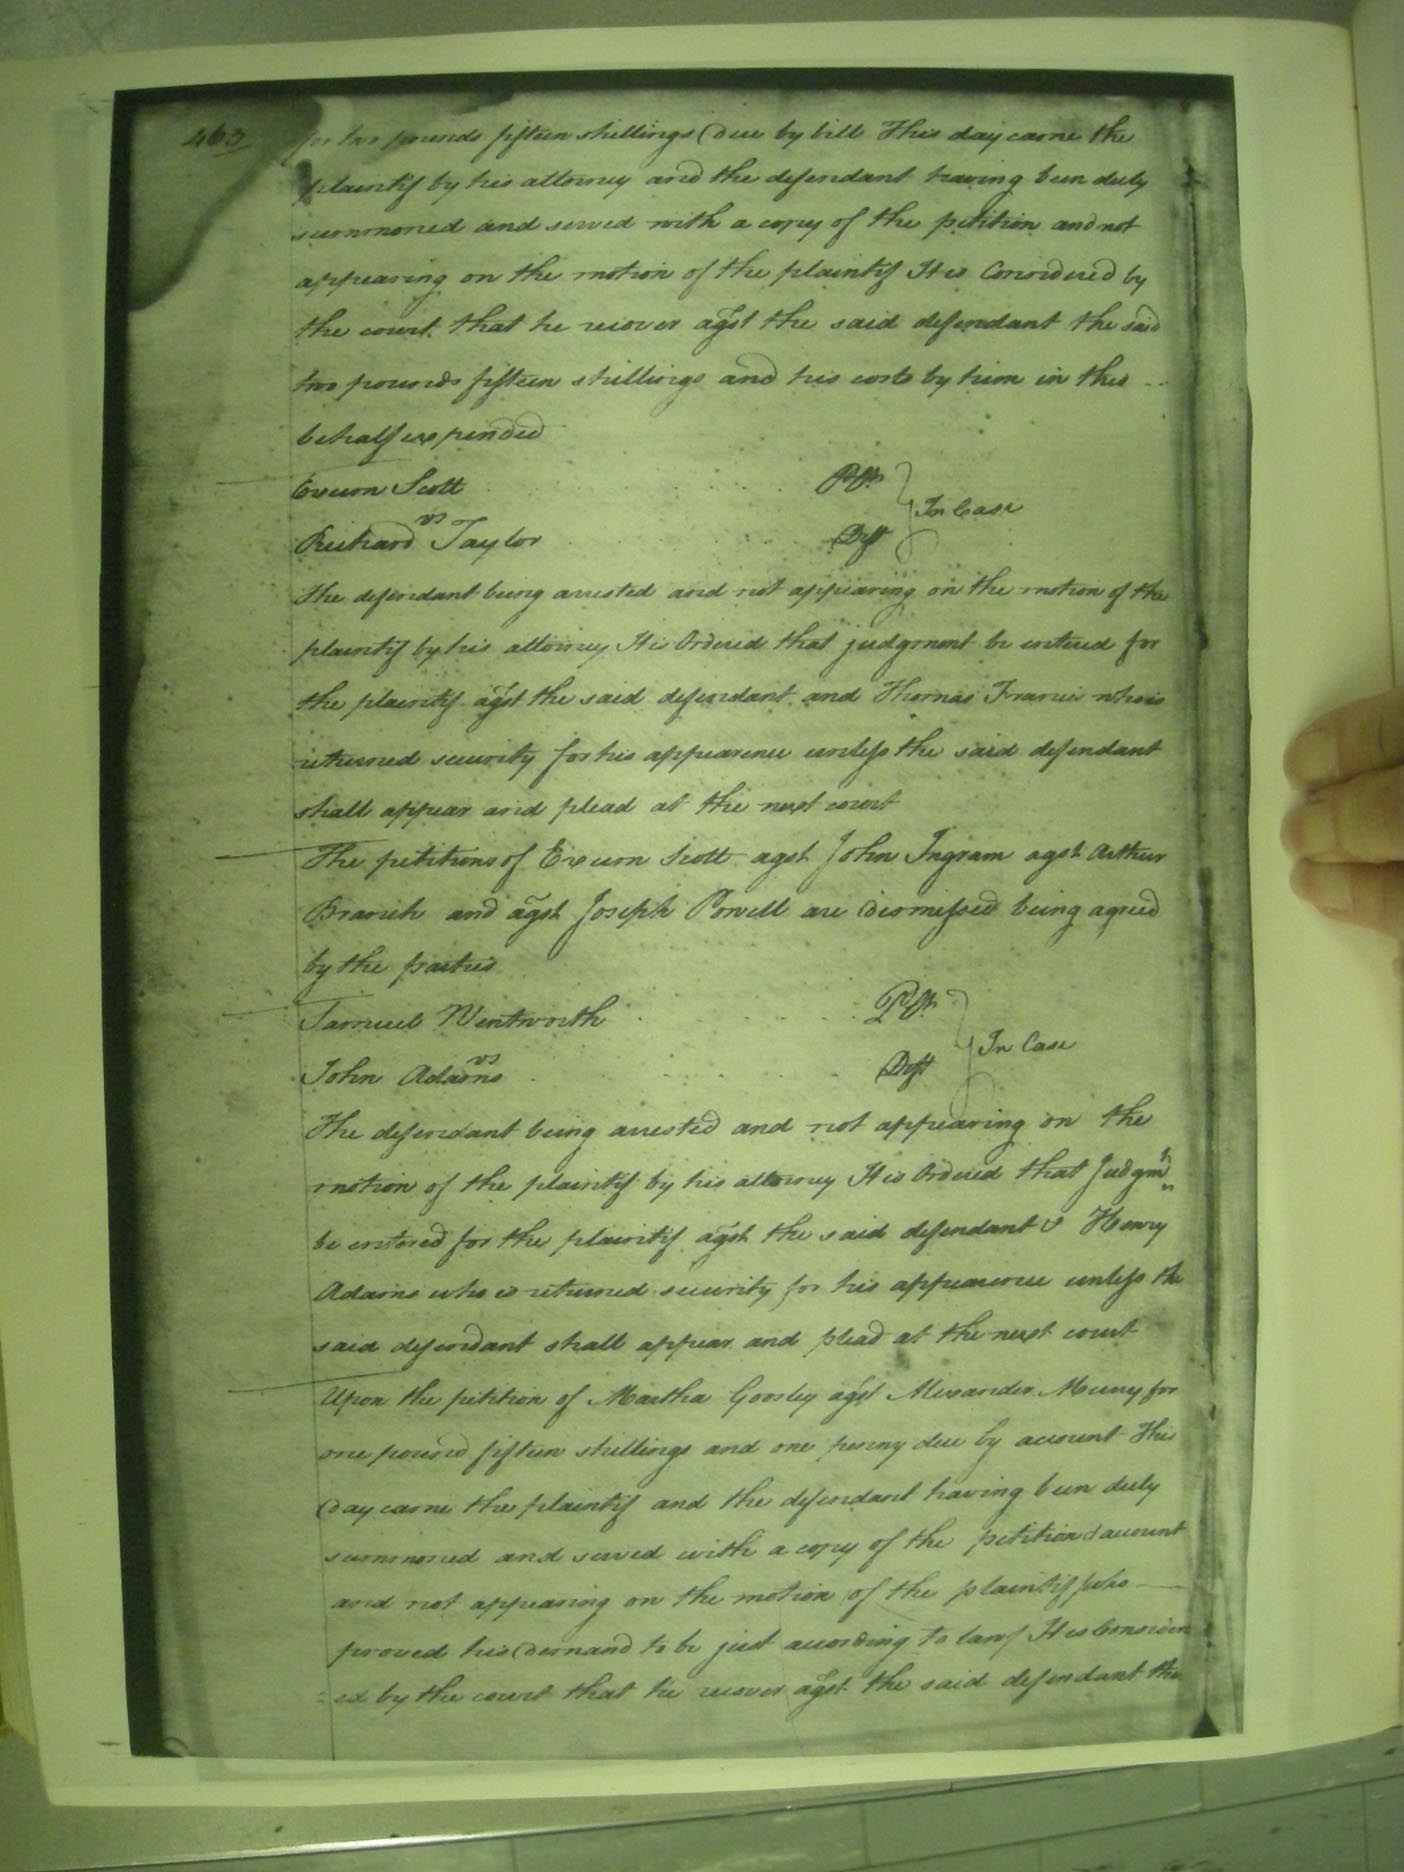 463
for two pounds fifteen shillings due by bill This day came the
plaintif by his attorney and the defendant having been duly
summoned and served with a copy of the petition and not
appearing on the motion of the plaintif It is Considered by
the court that he recover agst the said defendant the said
two pounds fifteen shillings and his costs by him in this
behalf expended
Exum Scott Plt
vs In Case
Richard Taylor Deft
The defendant being arrested and not appearing on the motion of the
plaintif by his attorney It is Ordered that judgment be entered for
the plaintif agst the said defendant and Thomas Francis who is
returned security for his appearence unless the said defendant
shall appear and plead at the next court
The petitions of Exum Scott agst John Ingram agst Arthur
Branch and agst Joseph Powell are dismissed being agreed
by the parties
Samuel Wentworth Plt
vs In Case
John Adams Deft
The defendant being arrested and not appearing on the
motion of the plaintif by his attorney It is Ordered that Judgmt
be entered for the plaintif agst the said defendant & Henry
Adams who is returned security for his appearence unless the
said defendant shall appear and plead at the next court
Upon the petition of Martha Goosley agst Alexander Murry for
one pound fifteen shillings and one penny due by account This
day came the plaintif and the defendant having been duly
summoned and served with a copy of the petition & account
and not appearing on the motion of the plaintif who
proved his demand to be just according to law It is Consider
ed by the court that he recover agst the said defendant the